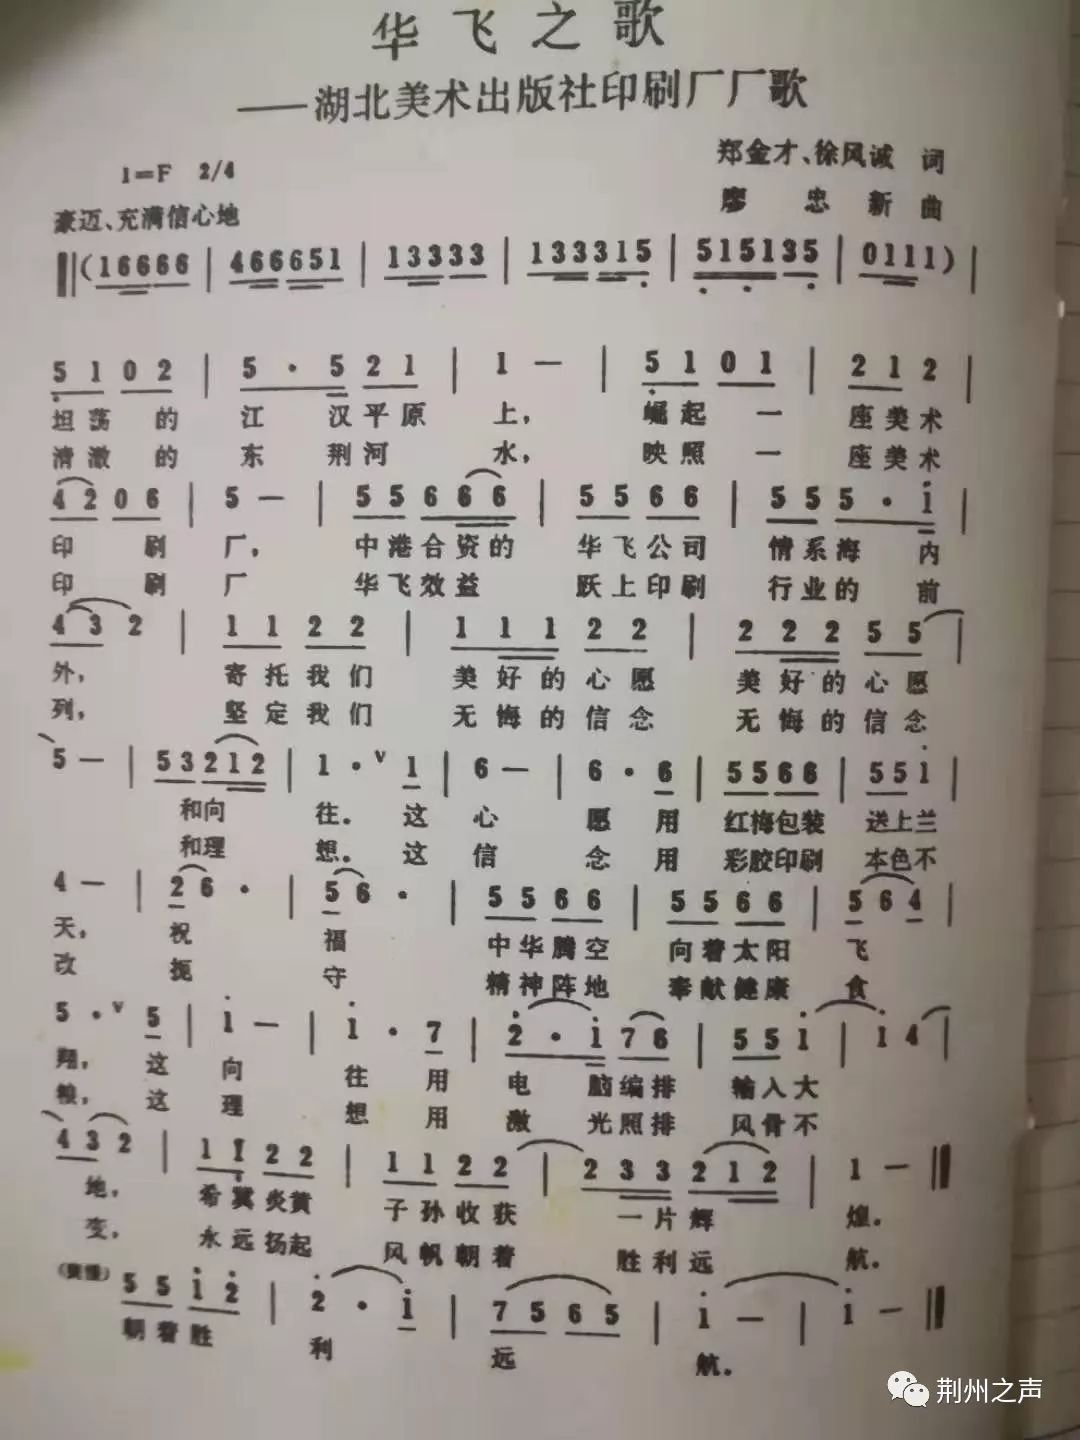 华飞之歌
——湖北美术出版社印刷厂厂歌
1=F 2/4
郑金才、徐风诚 词
豪迈、充满信心地
廖忠新 曲
(16666 | 466651 | 133333 | 133315 | 515135 | 0111)
51 02 | 5·5 21 | 1 — | 51 01 | 21 2
坦荡的 江 汉平原 上, 崛起一 座美术
清澈的 东 荆河 水, 映照一 座美术
42 06 | 5 — | 55 666 | 55 66 | 55 5·i
印 刷 厂, 中港合资的 华飞公司 情系海 内
印 刷 厂 华飞效益 跃上印刷 行业的 前
43 2 | 11 22 | 111 22 | 222 55
外, 寄托我们 美好的心愿 美好的心愿
列, 坚定我们 无悔的信念 无悔的信念
5 — | 53 212 | 1·V 1 | 6 — | 6·6 | 55 66 | 55 i
和向 往。 这 心 愿 用 红梅包装 送上兰
和理 想。 这 信 念 用 彩胶印刷 本色不
4 — | 26· | 56· | 55 66 | 55 66 | 5 6 4
天, 祝 福 中华腾空 向着太阳 飞
改 扼 守 精神阵地 奉献健康 食
5·V 5 | i — | i·7 | 2·i 76 | 55 i | i 4
翔, 这 向 往 用 电 脑编排 输入大
粮, 这 理 想 用 激 光照排 风骨不
43 2 | 11 22 | 11 22 | 233 212 | 1 —
地, 希冀炎黄 子孙收获 一片辉 煌。
变, 永远扬起 风帆朝着 胜利远 航。
55 i2 | 2·i | 75 65 | i — | i —
朝着胜 利 远 航。
荆州之声